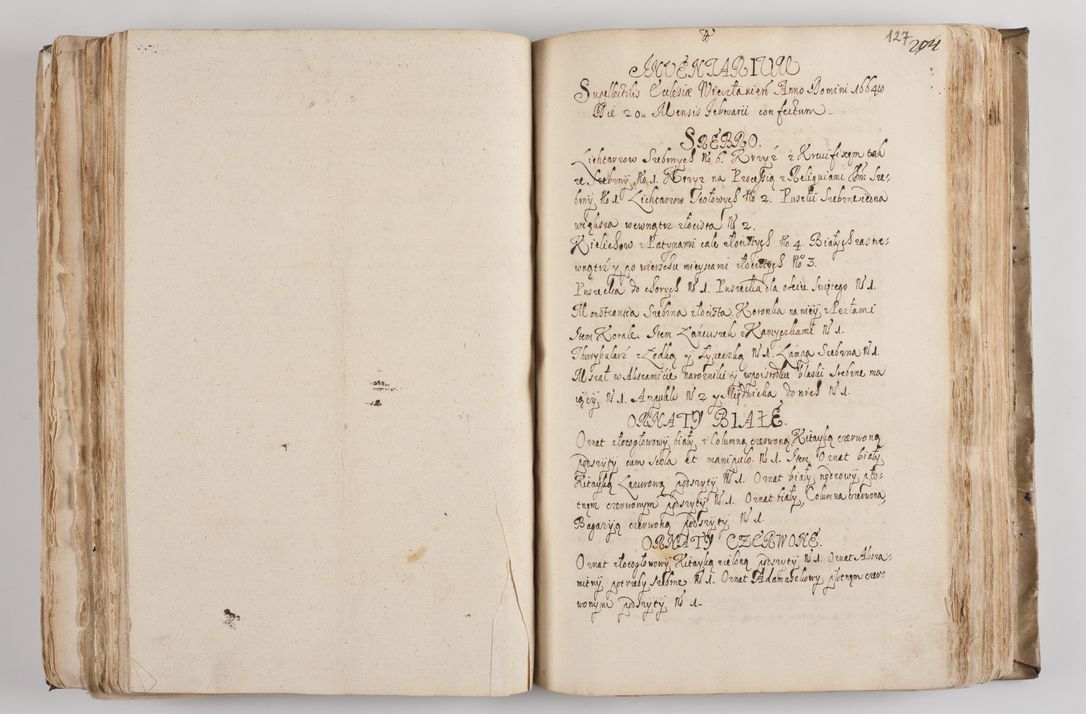 127 204
INVENTARIUM
Supellectilis Eclesiæ Anno Domini 1664to
Die 20ma Mensis Februarii confectum
SREBRO.
Lichtarzow Srebrnych No 6. Krzyż z Krucifixem tak
ze Srebrny No 1. Krzyz na Procesyią z Reliquiami Sre-
brny No 1. Lichtarzow Stołowych No 2. Puszki Srebrne iedna
większa wewnątrz złocista No 2.
Kielichow z Patynami cale złocistych No 4. Białych zas we-
wnątrz y po wierzchu mieyscami złocistych No 3.
Puszecka do chorych No 1. Puszecka dla oleiu Swiętego No 1.
Monstrancia Srebrna złocista, Koronka na niey z Perłami
Item Korale. Item Łancuszek z Kamyczkami No 1.
Thurybularz z Łodką y Łyzeczką No 1. Lampa Srebrna No 1.
Mszał w Aksamicie narozniki y wposrodku blaski Srebrne ma
iący No 1. Ampułki No 2 y Miednicka do nich No 1.
ORNATY BIAŁE.
Ornat złotogłowowy biały z Columną czerwoną Kitayką czerwoną
podszyty cum stola et manipulo. No 1. Item Ornat biały
Kitayką Lazurową podszyty No 1. Ornat biały płó-
tnem czerwonym podszyty No 1. Ornat biały, Columna czerwona,
Bagazyą czerwoną podszyty No 1.
ORNATY CZERWONE.
Ornat złotogłowowy Kitayką zieloną podszyty No 1. Ornat Aksa-
mitny potrzeby srebrne No 1. Ornat Adamaszkowy płotnem czer-
wonym podszyty No 1.